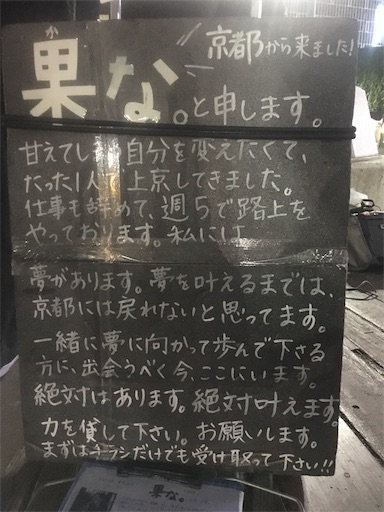 京都から来ました!
か
果な。と申します。
甘えてしまう自分を変えたくて、
たった1人で上京してきました。
仕事も辞めて、週5で路上を
やっております。私には
夢があります。夢を叶えるまでは、
京都には戻れないと思ってます。
一緒に夢に向かって歩んで下さる
方に、出会うべく今、ここにいます。
絶対はあります。絶対叶えます。
力を貸して下さい。お願いします。
まずはチラシだけでも受け取って下さい!!
果な。